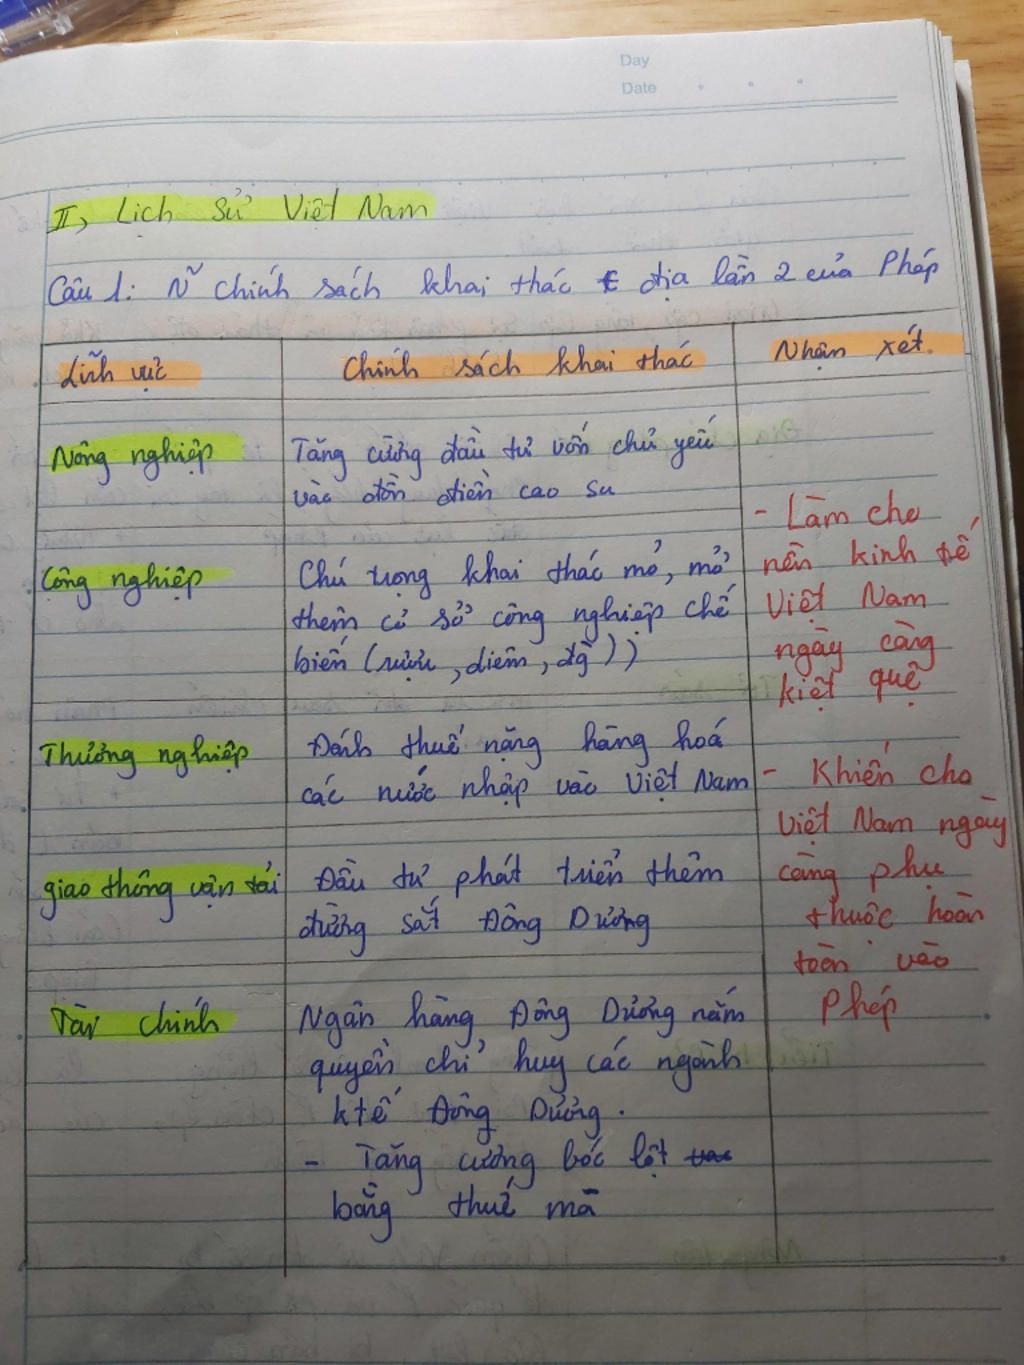 Day
Date
II, Lịch sử Việt Nam
Câu 1: N~ chính sách khai thác t địa lần 2 của Pháp
Lĩnh vực
Chính sách khai thác
Nhận xét.
Nông nghiệp
Tăng cường đầu tư vốn chủ yếu
vào đồn điền cao su
Công nghiệp
Chú trọng khai thác mỏ, mở
thêm cơ sở công nghiệp chế
biến (rượu, diêm, đg))
Thương nghiệp
Đánh thuế nặng hàng hoá
các nước nhập vào Việt Nam
giao thông vận tải
Đầu tư phát triển thêm
đường sắt Đông Dương
Tài chính
Ngân hàng Đông Dương nắm
quyền chỉ huy các ngành
ktế Đông Dương.
- Tăng cường bóc lột
bằng thuế má
- Làm cho
nền kinh tế
Việt Nam
ngày càng
kiệt quệ
- Khiến cho
Việt Nam ngày
càng phụ
thuộc hoàn
toàn vào
Pháp